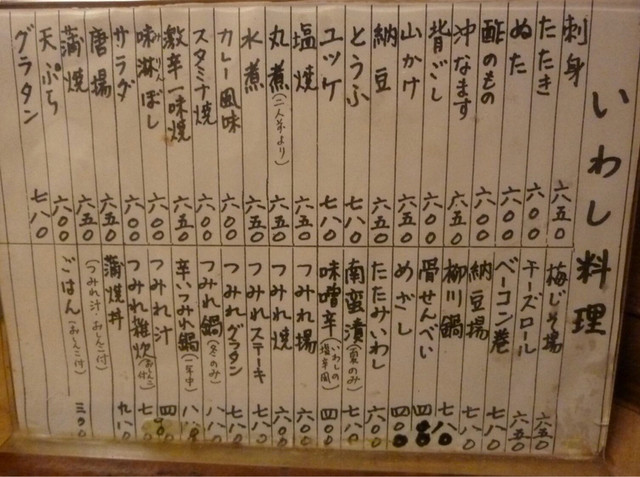 いわし料理
刺身 六五〇
たたき 六〇〇
ぬた 六〇〇
酢のもの 六〇〇
沖なます 六五〇
背ごし 六〇〇
山かけ 六五〇
納豆 六五〇
とうふ 七八〇
ユッケ 七八〇
塩焼 六五〇
丸煮(二人前より) 六五〇
水煮 六五〇
カレー風味 六〇〇
スタミナ焼 六〇〇
激辛一味焼 六五〇
味淋ぼし 六〇〇
サラダ 六〇〇
唐揚 六五〇
蒲焼 六五〇
天ぷら 六〇〇
グラタン 七八〇
梅じそ揚 六五〇
チーズロール 六五〇
ベーコン巻 七八〇
納豆揚 七八〇
柳川鍋 七八〇
骨せんべい
めざし 四〇〇
たたみいわし 六〇〇
南蛮漬(夏のみ) 七八〇
味噌辛(いわしの塩辛風) 四〇〇
つみれ揚 六〇〇
つみれ焼 六〇〇
つみれステーキ 七八〇
つみれグラタン 七八〇
つみれ鍋(冬のみ) 八八〇
辛いつみれ鍋(一年中)
つみれ汁
つみれ雑炊 七八〇
蒲焼丼 九八〇
(つみれ汁・おしんこ付)
ごはん(おしんこ付) 三〇〇